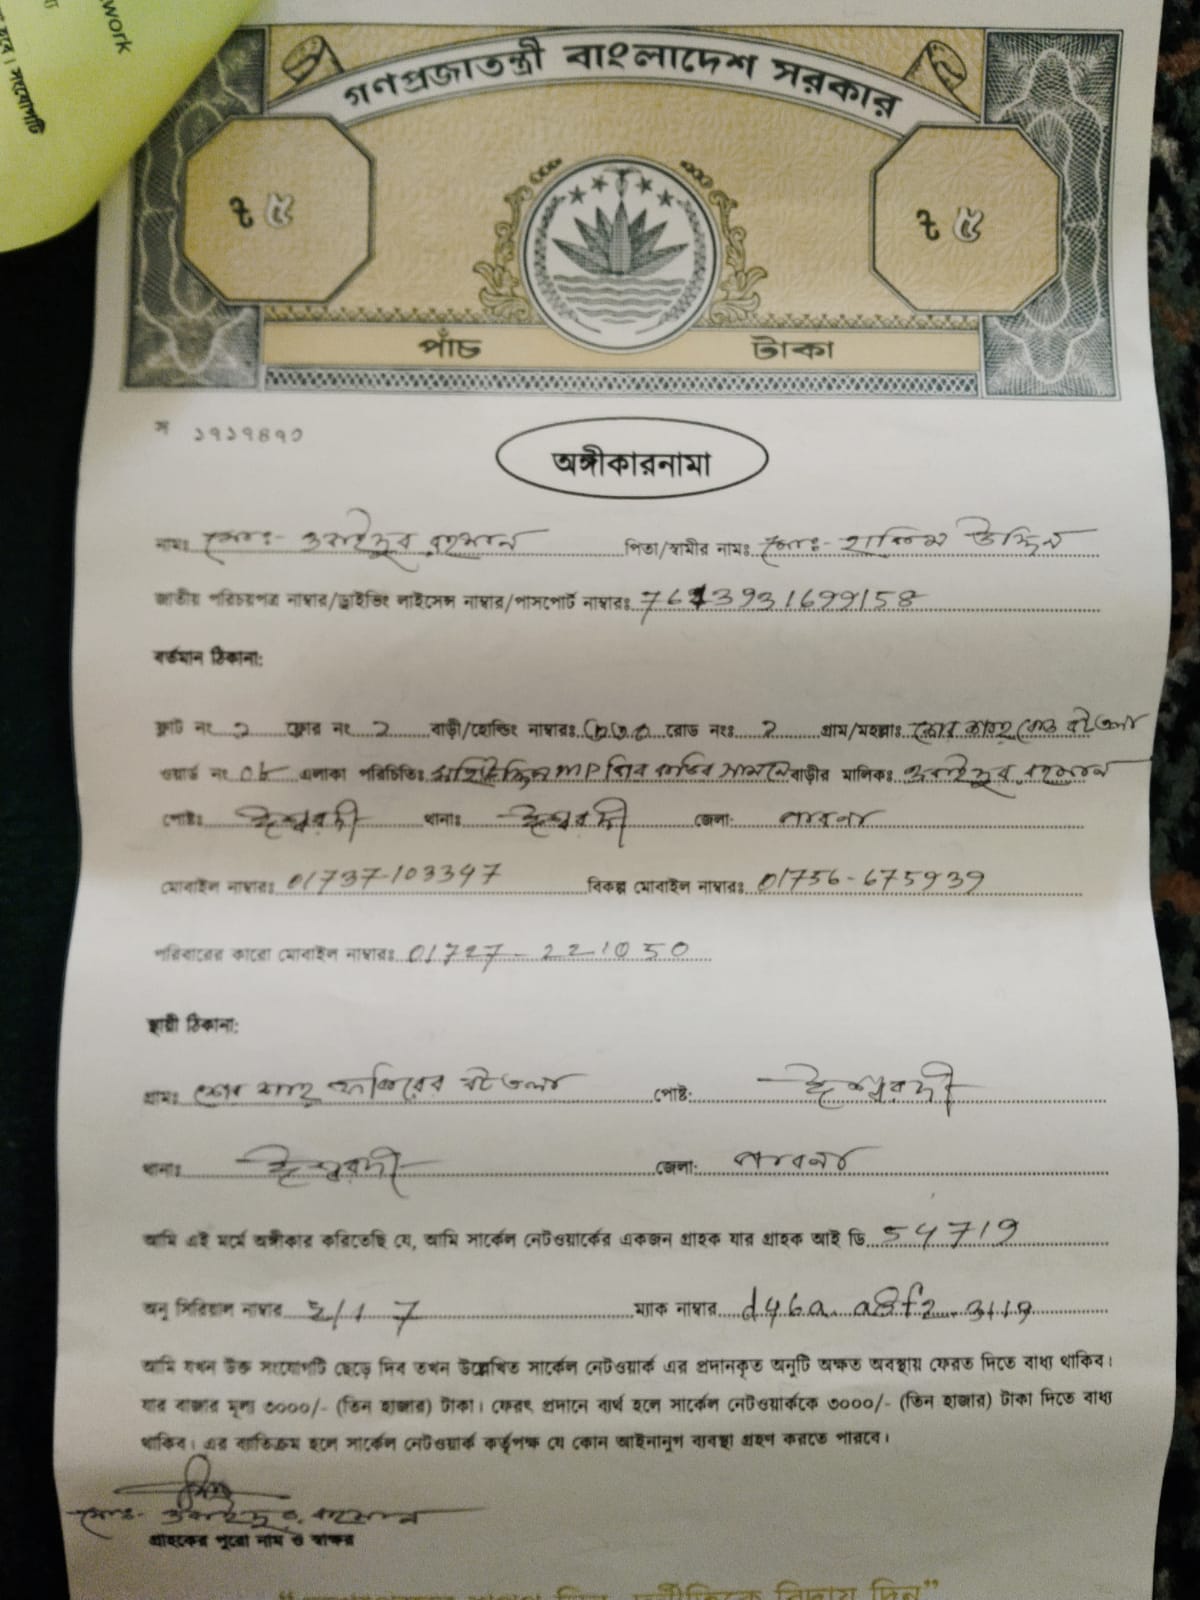 work
হবে। সংযোগটি
গণপ্রজাতন্ত্রী বাংলাদেশ সরকার
৳ ৫ ৳ ৫
পাঁচ টাকা
স ১৭১৭৪৭০
অঙ্গীকারনামা
নামঃ মোঃ- ওবাইদুর রহমান পিতা/স্বামীর নামঃ মোঃ- হাকিম উদ্দিন
জাতীয় পরিচয়পত্র নাম্বার/ড্রাইভিং লাইসেন্স নাম্বার/পাসপোর্ট নাম্বারঃ
বর্তমান ঠিকানা:
ফ্লাট নং ২ ফ্লোর নং ২ বাড়ী/হোল্ডিং নাম্বারঃ রোড নংঃ ২ গ্রাম/মহল্লাঃ
ওয়ার্ড নং ০৮ এলাকা পরিচিতিঃ MP সামনে বাড়ীর মালিকঃ ওবাইদুর রহমান
পোষ্টঃ ঈশ্বরদী থানাঃ ঈশ্বরদী জেলা: পাবনা
মোবাইল নাম্বারঃ 01737-103347 বিকল্প মোবাইল নাম্বারঃ 01756-675939
পরিবারের কারো মোবাইল নাম্বারঃ 01727-221050
স্থায়ী ঠিকানা:
গ্রামঃ শের শাহ ফকিরের বটতলা পোষ্ট: ঈশ্বরদী
থানাঃ ঈশ্বরদী জেলা: পাবনা
আমি এই মর্মে অঙ্গীকার করিতেছি যে, আমি সার্কেল নেটওয়ার্কের একজন গ্রাহক যার গ্রাহক আই ডি 54719
অনু সিরিয়াল নাম্বার 2/1 7 ম্যাক নাম্বার
আমি যখন উক্ত সংযোগটি ছেড়ে দিব তখন উল্লেখিত সার্কেল নেটওয়ার্ক এর প্রদানকৃত অনুটি অক্ষত অবস্থায় ফেরত দিতে বাধ্য থাকিব।
যার বাজার মূল্য ৩০০০/- (তিন হাজার) টাকা। ফেরৎ প্রদানে ব্যর্থ হলে সার্কেল নেটওয়ার্ককে ৩০০০/- (তিন হাজার) টাকা দিতে বাধ্য
থাকিব। এর ব্যতিক্রম হলে সার্কেল নেটওয়ার্ক কর্তৃপক্ষ যে কোন আইনানুগ ব্যবস্থা গ্রহণ করতে পারবে।
মোঃ- ওবাইদুর রহমান
গ্রাহকের পুরো নাম ও স্বাক্ষর
দুর্নীতিকে বিদায় দিন”